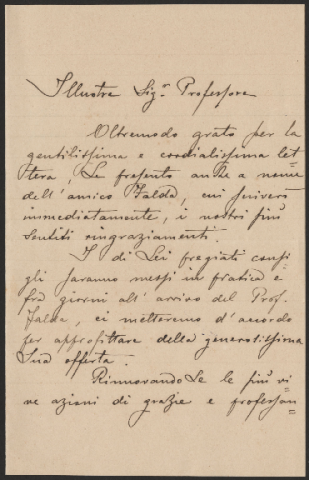 Illustre Sigr. Professore
Oltremodo grato per la
gentilissima e cordialissima let-
tera, Le presento anche a nome
dell'amico Falda, cui scriverò
immediatamente, i nostri più
sentiti ringraziamenti.
I di Lei pregiati consi-
gli saranno messi in pratica e
frà giorni all'arrivo del Prof.
Falda, ci metteremo d'accordo
per approfittare della generosissima
Sua offerta.
RinnovandoLe le più vi-
ve azioni di grazie e professan-